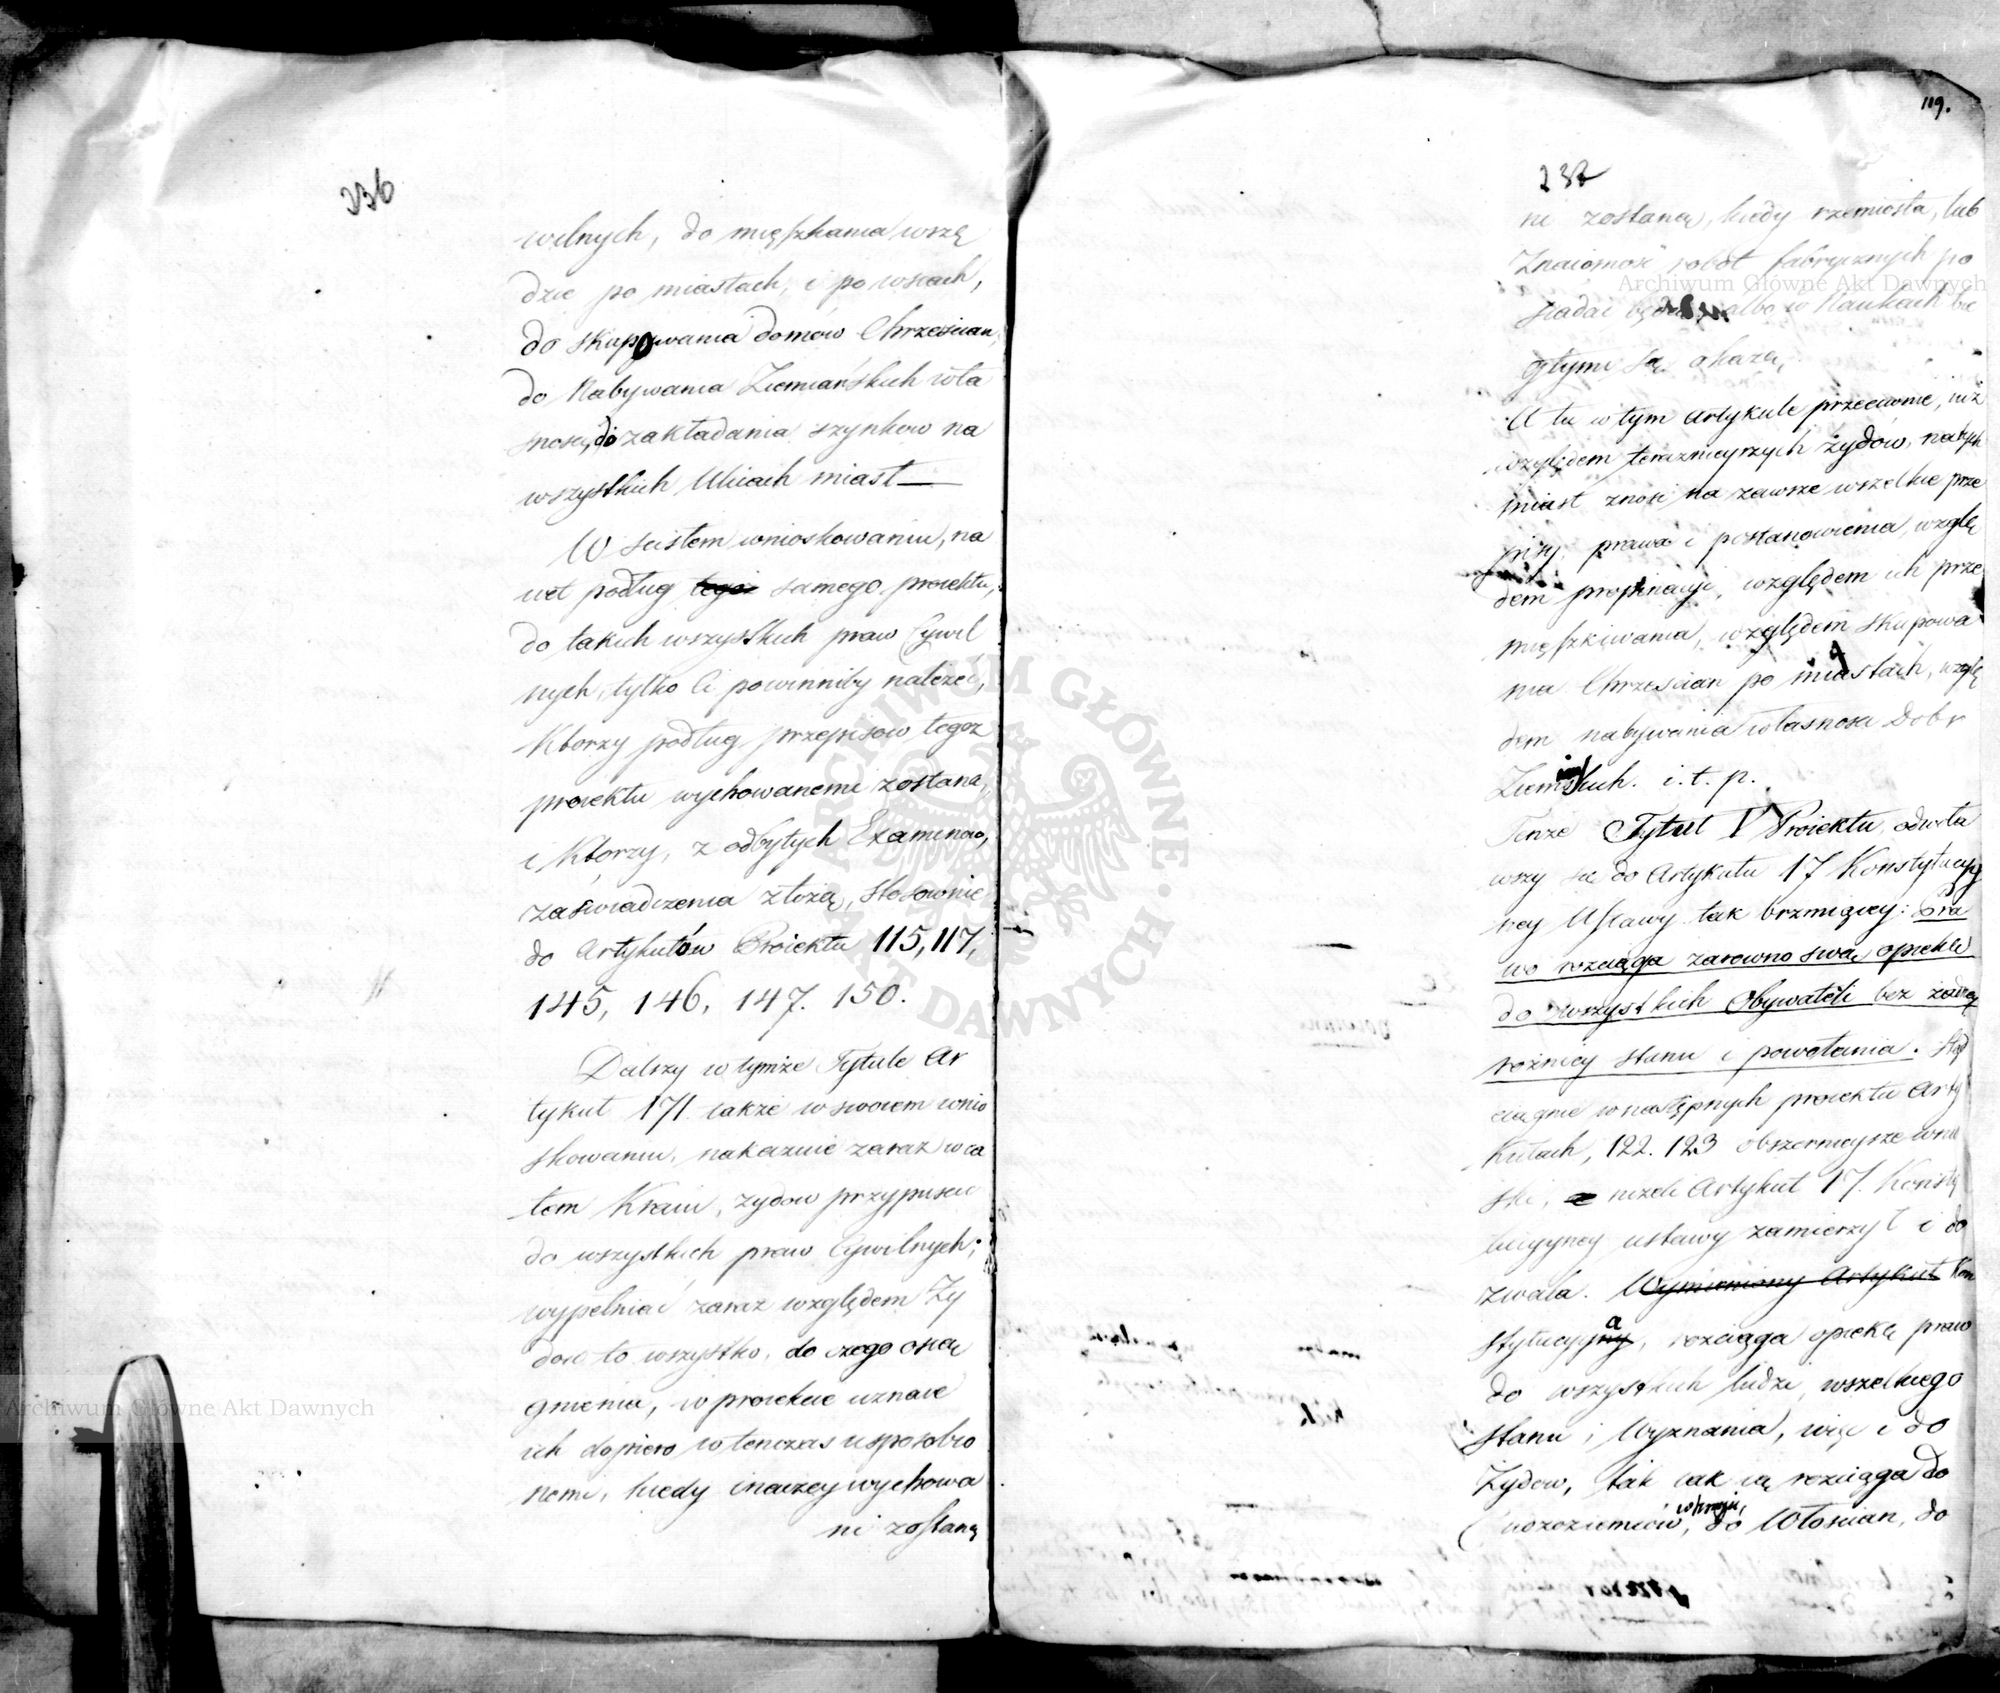 236
wilnych, do mięszkania wszę
dzie po miastach, i po wsiach,
do skupowania domów Chrześcian,
do Nabywania Ziemiańskich wła
snosci, do zakładania szynkow na
wszystkich Ulicach miast —
W scisłem wnioskowaniu, na
wet podług tegoż samego proiektu,
do takich wszystkich praw Cywil
nych, tylko Ci powinniby należeć,
Ktorzy podług przepisow tegoz
proiektu wychowanemi zostaną,
i Ktorzy, z odbytych Examinow,
zaświadczenia złożą, stosownie
do Artykułów Proiektu 115, 117,
145, 146, 147. 150.
Dalszy w tymże Tytule Ar
tykuł 171 także w swoiem wnio
skowaniu, nakazuie zaraz w ca
łem Kraiu, zydow przypuscić
do wszystkich praw Cywilnych;
wypełniać zaraz względem Ży
dow to wszystko, do czego osią
gnienia, w proiekcie uznaie
ich dopiero wtenczas usposobio
nemi, kiedy inaczey wychowa
ni zostaną
119.
237
ni zostaną, kiedy rzemiosła, lub
Znaiomość robót fabrycznych po
siadać będą albo w Naukach bie
głymi się okażą,
A tu w tym artykule przeciwnie, iuż
względem teraznieyszych żydów, natych
miast znosi na zawsze wszelkie prze
pisy, prawa i postanowienia, wzglę
dem propinacyi, względem ich prze
mięszkiwania, względem skupowa
nia Chrzescian po miastach, wzglę
dem nabywania własnosci Dobr
Ziemskich. i. t. p.
Tenże Tytuł V Proiektu, odwoła
wszy się do Artykułu 17 Konstytucyy
ney Ustawy tak brzmiącey: Pra
wo rozciąga zarowno swą opiekę
do wszystkich Obywateli bez żadney
rożnicy stanu i powołania.
ciągnie w następnych proiektu Arty
kułach, 122. 123 obszernieysze wnio
ski, niżeli Artykuł 17. Konsty
tucyyney ustawy zamierzył i do
zwala. Wymieniony Artykuł Kon
stytucyyny, rozciąga opiekę praw
do wszystkich ludzi wszelkiego
stanu i Wyznania, więc i do
Żydow, tak iak ią rozciąga do
Cudzoziemców, do Włoscian, do
Archiwum Główne Akt Dawnych
Archiwum Główne Akt Dawnych
ARCHIWUM GŁÓWNE AKT DAWNYCH